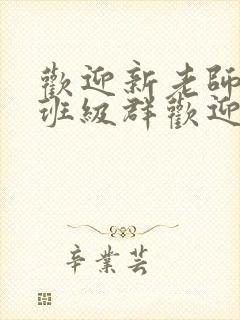 歡迎新老師
班級群歡迎
辛業芸